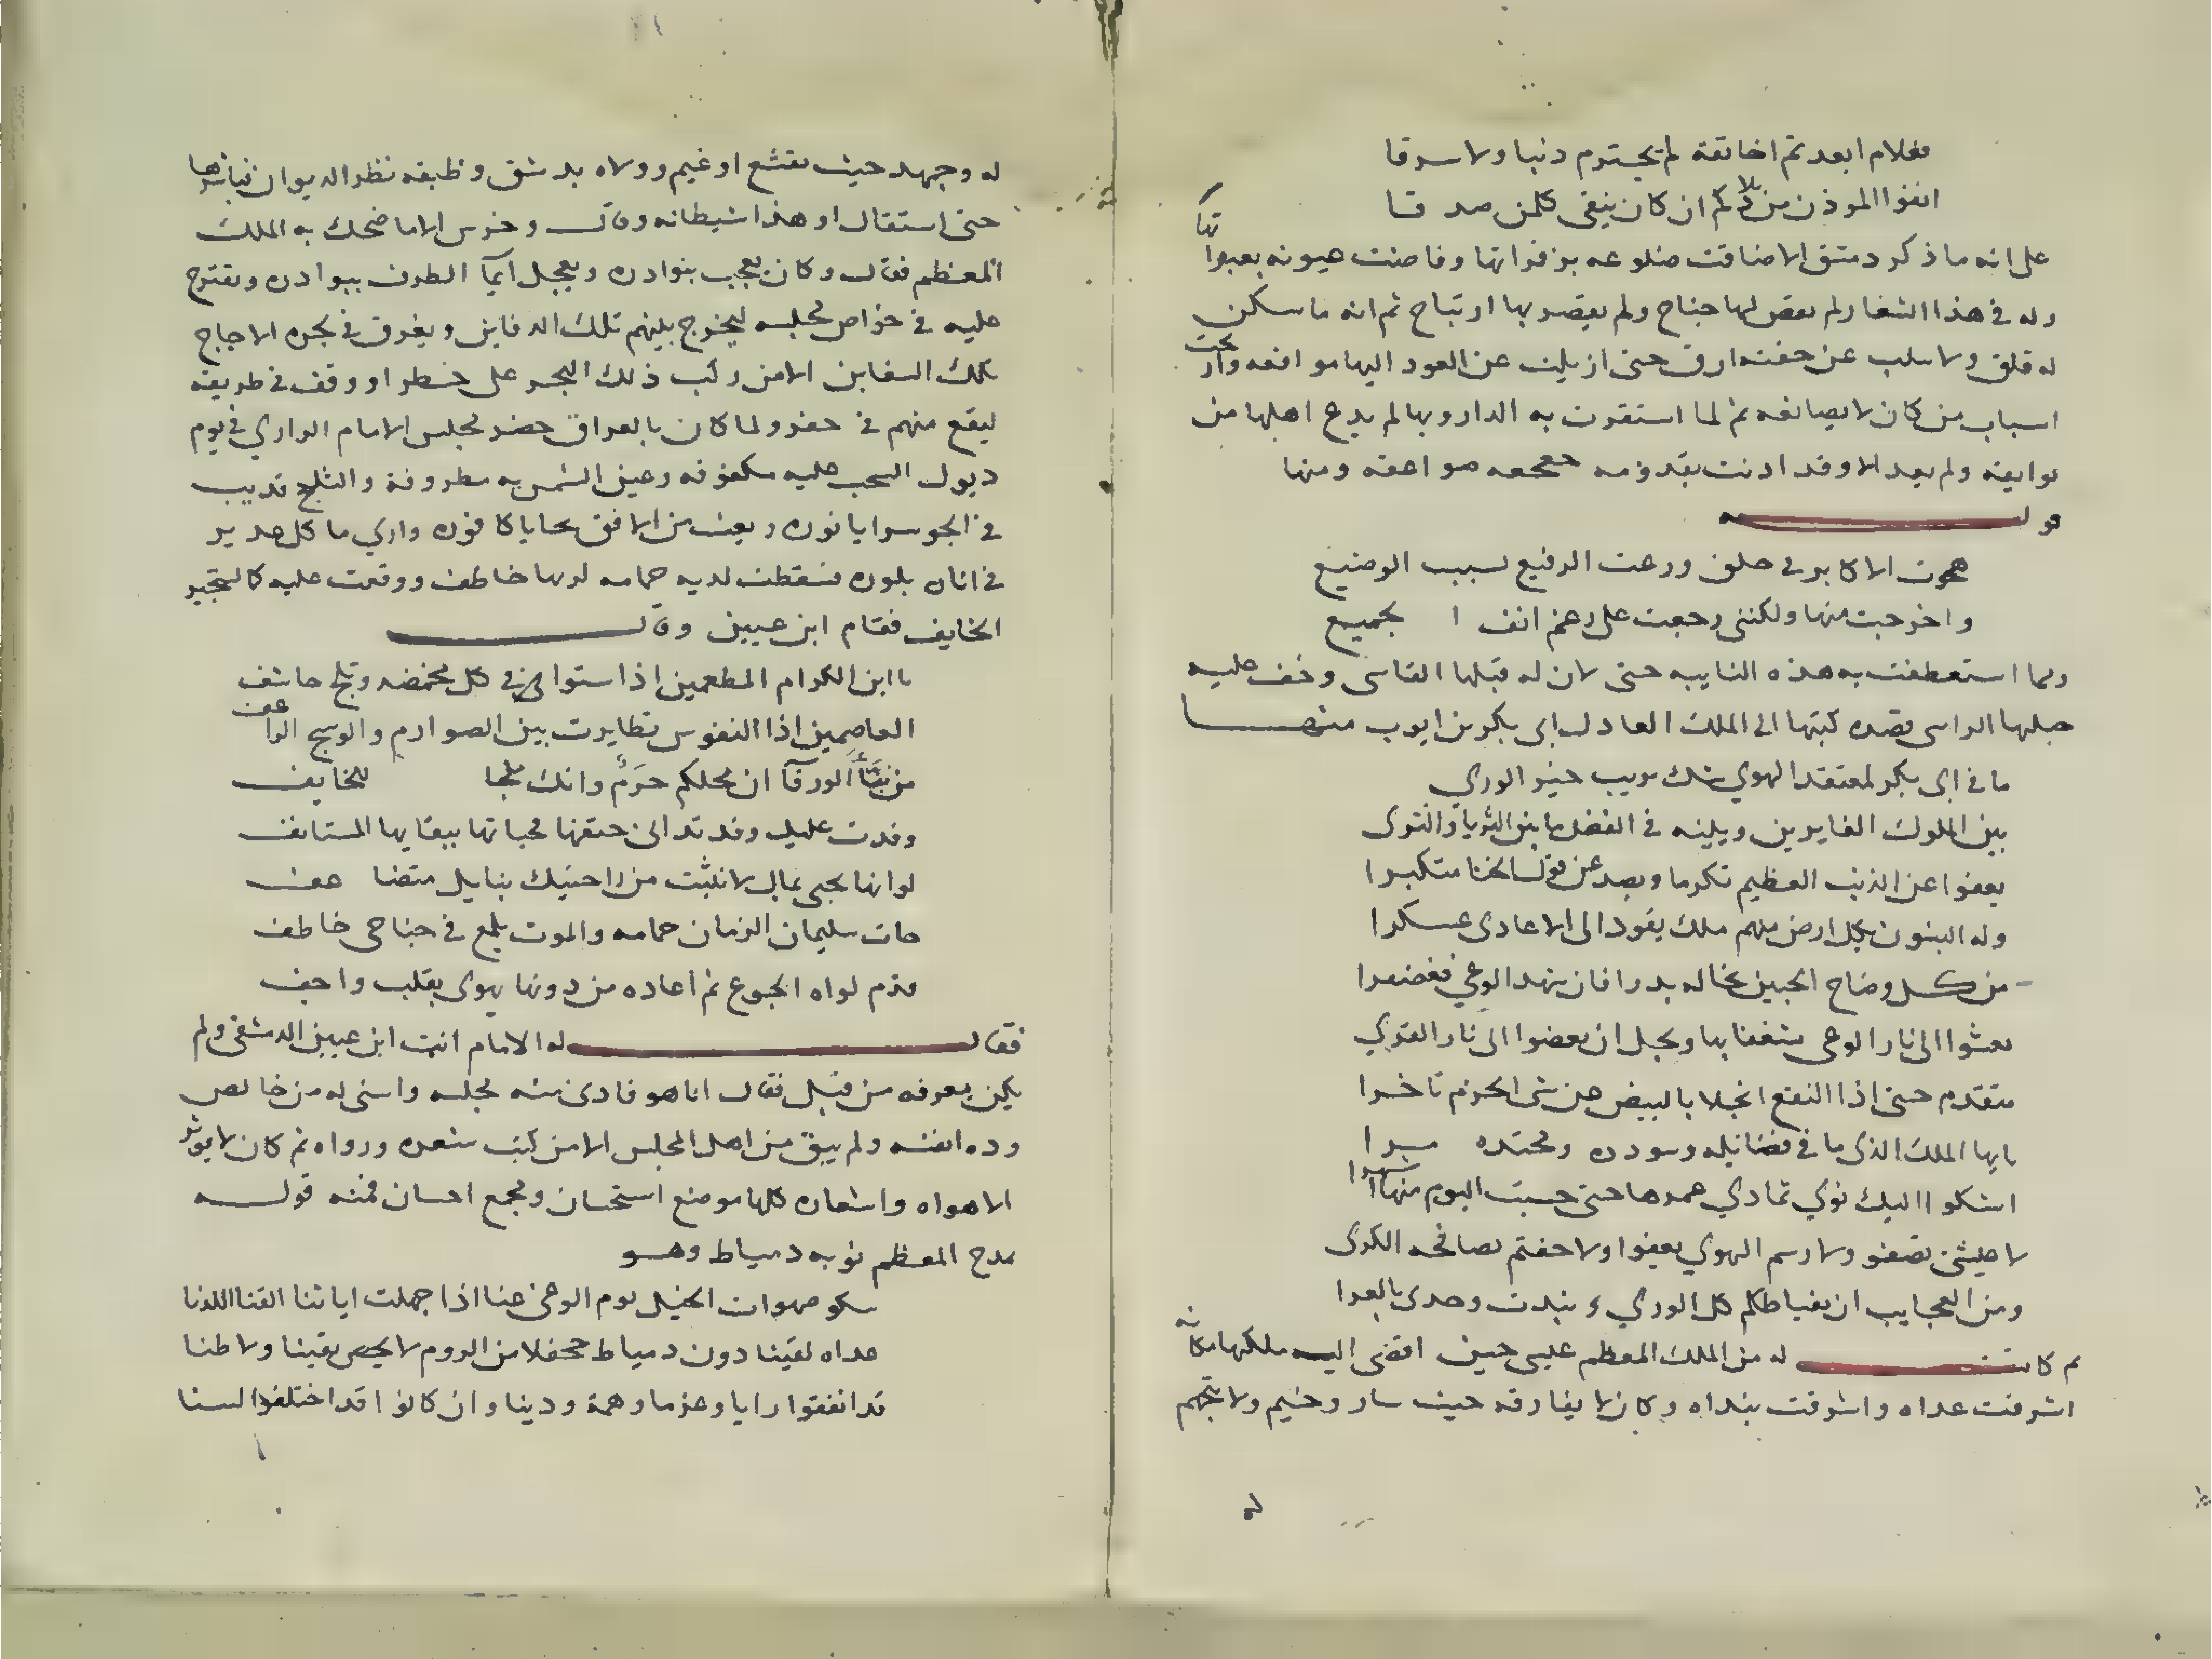 فعلام ابعدتم اخا ثقة لم يجترم ذنبا ولا سرقا
انفوا الموذن من بلادكم ان كان ينفى كلمن صدقا
على انه ما ذكر دمشق الا ضاقت ضلوعه بزفراتها وفاضت عيونه بعبراتها
وله في هذا اشعار ولم يعص لها جناح ولم يقصر بها ارتياح ثم انه ما سكن
له قلق ولا سلب عن جفنه ارق حتى ازيلت عن العود اليها موانعه
اسباب من كان لا يصانعه ثم لما استقرت به الدار وبها لم يدع اهلها من
بوايقه ولم يعد الا وقد اذنت بقدومه صواعقه ومنها
قوله
هجوت الاكابر في جلق ورعت الرفيع بسبب الوضيع
واخرجت منها ولكنني رجعت على رغم انف الجميع
ومما استعطفت به هذه النايبه حتى لان له قبلها القاسى وخف عليه
جبلها الراسى قصيده كتبها الى الملك العادل ابى بكر بن ايوب منها
ما في ابى بكر لمعتقد الهوي شك يريب خير الوري
بين الملوك الغابرين وبينه في الفضل ما بين الثريا والثرى
يعفوا عن الذنب العظيم تكرما ويصد عن قول الخنا متكبرا
وله البنون بكل ارض منهم ملك يقود الى الاعادى عسكرا
من كل وضاح الجبين تخاله بدرا فان شهد الوغي فغضنفرا
يعشوا الى نار الوغى شغفا بها ويجل ان يعشوا الى نار القري
متقدم حتى اذا النقع انجلا بالبيض عن سبى الحريم تاخرا
يايها الملك الذى ما في فضايله وسودده ومحتده مرا
اشكوا اليك نوي تمادي عمرها حتى حسبت اليوم منها اشهرا
لا عيشتى تصفو ولا رسم الهوي يعفوا ولا جفنى يصافحه الكرى
ومن العجايب ان يقيل بظلكم كل الوري ونبذت وحدى بالعرا
ثم كانت له من الملك المعظم عيسى حين افضى اليه ملكها مكانه
اشرقت عداه واشرقت بنداه وكان لا يفارقه حيث سار وخيم ولا يتجهم
له وجهه حيث تقشع او غيم وولاه بدمشق وظيفه نظر الديوان فباشرها
حتى استقال او هذا شيطانه وقال وخرس الا ما ضحك به الملك
المعظم فقال وكان يعجب بنوادره ويعجل ايما الطرف ببوادره ويقترح
عليه في خواص مجلسه ليخرج بينهم تلك الدفاين ويغرق في بحره الاجاج
تلك السفاين الا من ركب ذلك البحر على خطر او وقف في طريقه
ليقع منهم في حفر ولما كان بالعراق حضر مجلس الامام الرازي في يوم
ذيول السحب عليه مكفوفه وعين الشمس به مطروفة والثلج قد بث
في الجو سرايا نوره وبعث من الافق تحايا كافوره واري ما كل غدير
في اناء بلوره فسقطت لديه حمامه لديها خاطف ووقعت عليه كالمستجير
الخايف فقام ابن عنين وقال
يا ابن الكرام المطعمين اذا شتوا في كل مخمصه وثلج خاشف
العاصمين اذا النفوس تطايرت بين الصوارم والوشيج الراعف
من نبأ الورقآ ان محلكم حرم وانك ملجا للخايف
وفدت عليك وقد تدانى حتفها فحباتها ببقايها المستانف
لو انها تحبى بمال لانثنت من راحتيك بنايل متضاعف
جات سليمان الزمان حمامه والموت يلمع في جناحى خاطف
قرم لواه الجوع ثم اعاده من دونها يهوى بقلب واجف
فقال له الامام انت ابن عنين الدمشقى ولم
يكن يعرفه من قبل فقال انا هو فادنى منه مجلسه واسنى له من خالص
وده انفسه ولم يبق من اهل المجلس الا من كتب شعره ورواه ثم كان لا يوثر
الا هواه واشعاره كلها موضع استحسان ومجمع احسان فمنه قوله
يمدح المعظم نوبه دمياط وهو
سلو صهوات الخيل يوم الوغى عنا اذا جهلت اياتنا القنا اللدنا
غداه لقينا دون دمياط جحفلا من الروم لا يحصى يقينا ولا ظنا
قد اتفقوا رايا وعزما وهمة ودينا وان كانوا قد اختلفوا لسنا